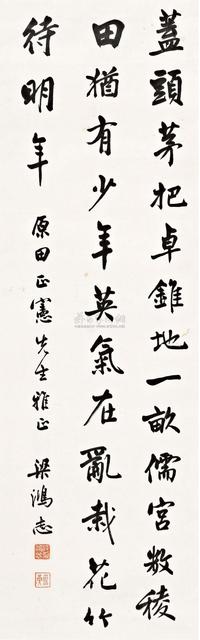 蓋頭茅把卓錐地一畝儒宮數稜
田猶有少年英氣在亂栽花竹
待明年
原田正憲先生雅正 梁鴻志